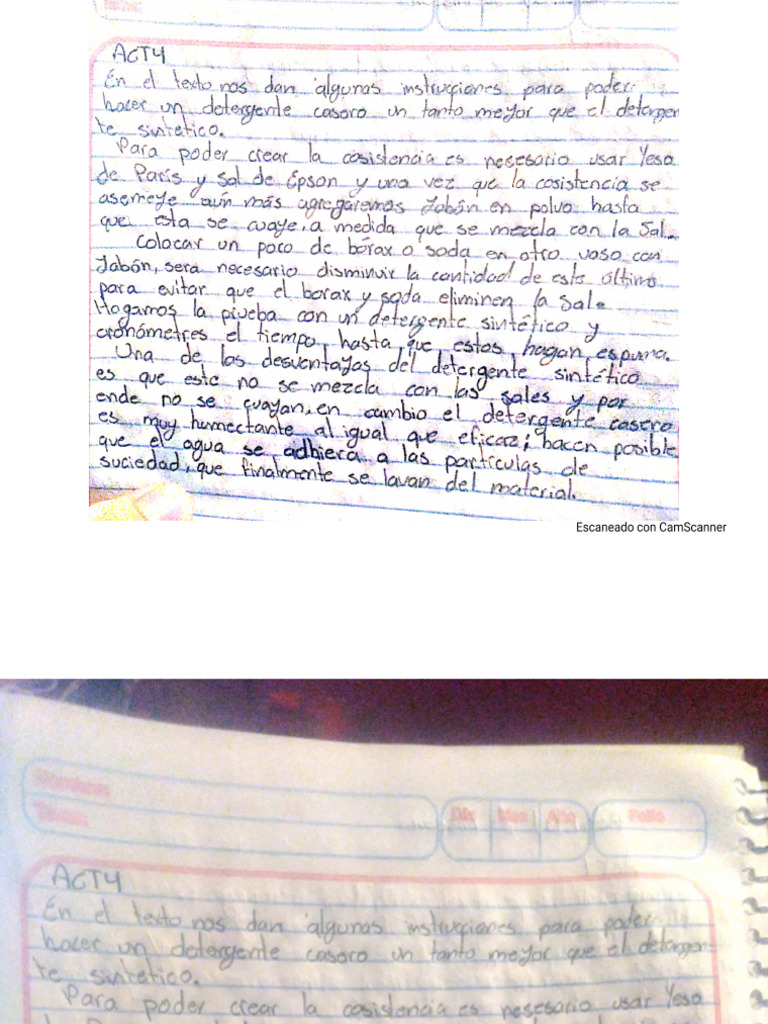 ACT4
En el texto nos dan algunas instrucciones para poder
hacer un detergente casero un tanto mejor que el detergen
te sintetico.
Para poder crear la cosistencia es nesesario usar Yeso
de París y Sal de Epson y una vez que la cosistencia se
asemeje aun más agregaremos Jabón en polvo hasta
que esta se cuaje, a medida que se mezcla con la Sal.
Colocar un poco de bórax o soda en otro vaso con
Jabón, sera necesario disminuir la cantidad de este último
para evitar que el borax y soda eliminen la Sal.
Hagamos la prueba con un detergente sintético y
cronómetres el tiempo, hasta que estos hagan espuma.
Una de las desventajas del detergente sintético
es que este no se mezcla con las sales y por
ende no se cuajan, en cambio el detergente casero
es muy humectante al igual que eficaz; hacen posible
que el agua se adhiera a las particulas de
suciedad, que finalmente se lavan del material.
Escaneado con CamScanner
Día Mes Año Folio
ACT4
En el texto nos dan algunas instrucciones para poder
hacer un detergente casero un tanto mejor que el detergen
te sintetico.
Para poder crear la cosistencia es nesesario usar Yeso